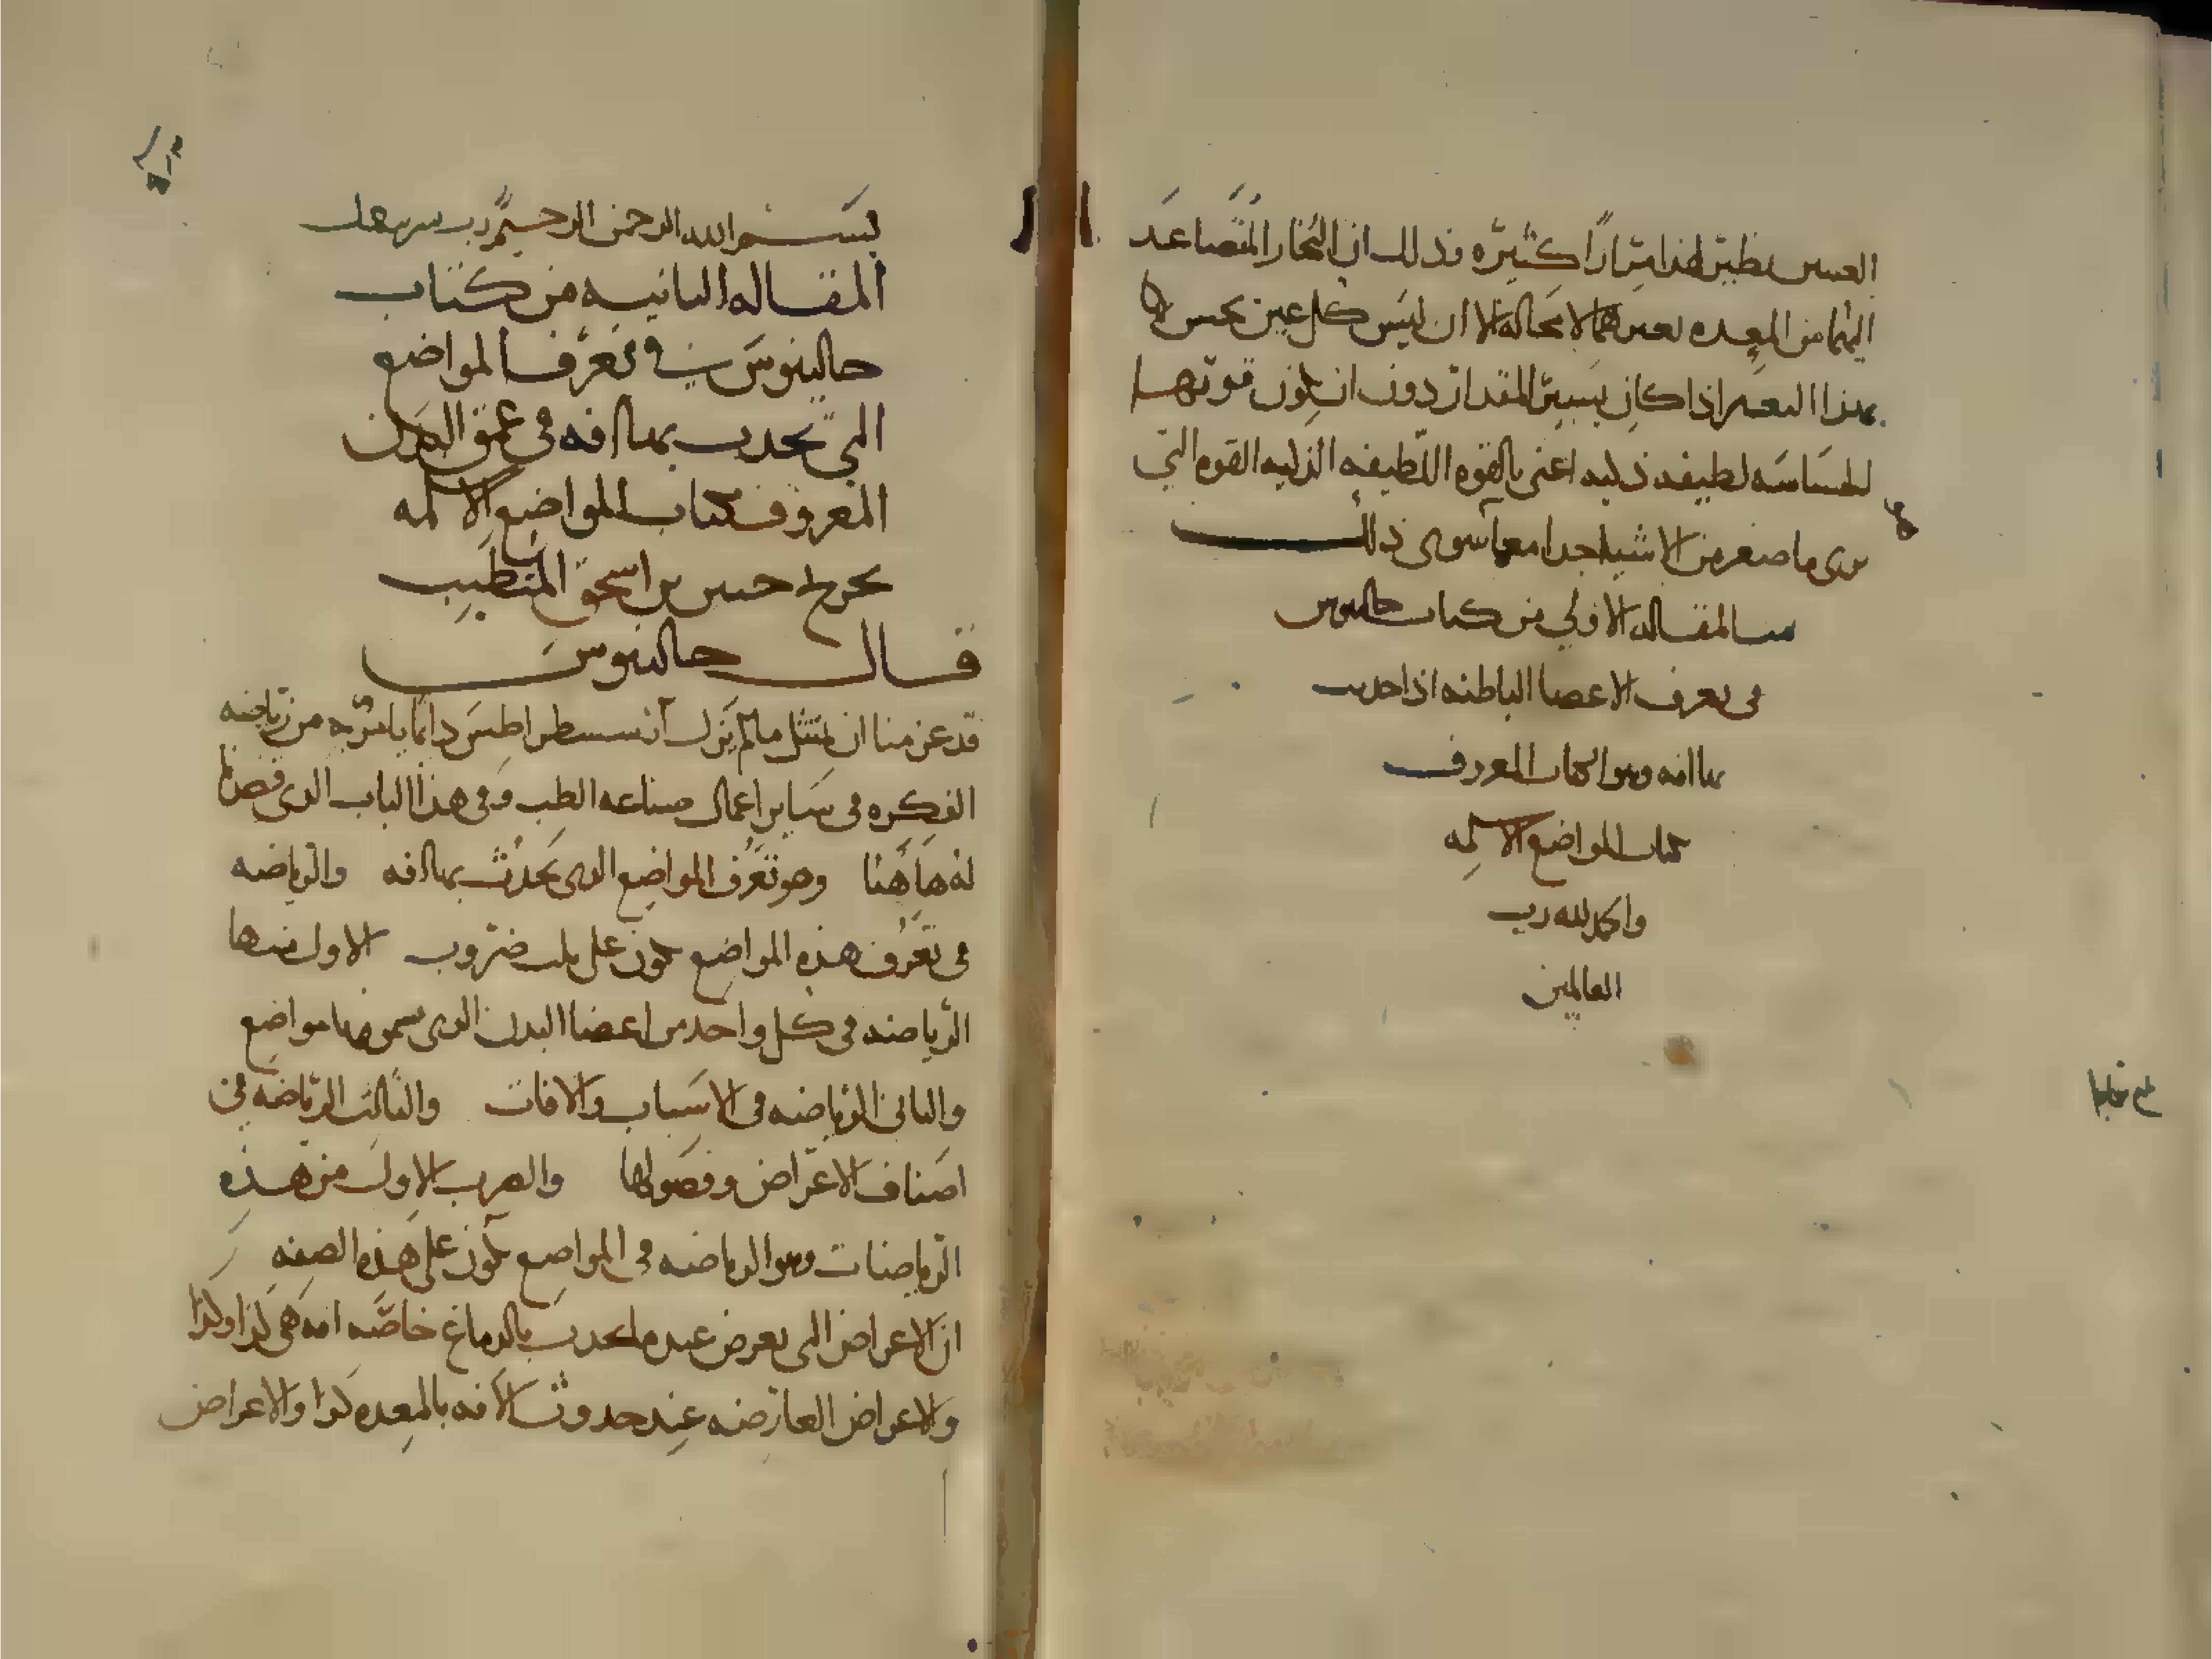 العينين نظير هذا مرارًا كثيره وذلك ان البخار المتصاعد
اليهما من المعده يغيرهما لا محاله الا ان ليس كل عين يحس لها
بهذا التغير اذا كان يسير المقدار دون ان تكون قوتها
الحساسه لطيفه ذكيه اعنى بالقوه اللطيفه الذكيه القوه التي
ترى ما صغر من الاشيا جدا معما سوى ذلك
تمت المقاله الاولي من كتاب جالينوس
في تعرف الاعضا الباطنه اذا حدثت
بها افه وهو الكتاب المعروف
بكتاب المواضع الالمه
والحمد لله رب
العالمين
بسم الله الرحمن الرحيم رب
المقاله الثانيه من كتاب
جالينوس في تعرف المواضع
التي تحدث بها افه في عمق البدن
المعروف بكتاب المواضع الالمه
حنين بن اسحق المتطبب
قال جالينوس
قد عزمنا ان نمتثل ما لم يزل اسسطراطس دائما يامر به من رياضه
الفكره في ساير اعمال صناعه الطب وفي هذا الباب الذي قصدنا
له هاهنا وهو تعرف المواضع الذي تحدث بها افه والرياضه
في تعرف هذه المواضع تكون على ثلث ضروب الاول منها
الرياضه في كل واحد من اعضا البدن الذي يسمونها مواضع
والثاني الرياضه في الاسباب والافات والثالث الرياضه في
اصناف الاعراض وفصولها والضرب الاول من هذه
الرياضات وهو الرياضه في المواضع تكون على هذه الصفه
ان الاعراض التي تعرض عند ما تحدث بالدماغ خاصه افه هي كذا وكذا
والاعراض العارضه عند حدوث الافه بالمعده كذا والاعراض